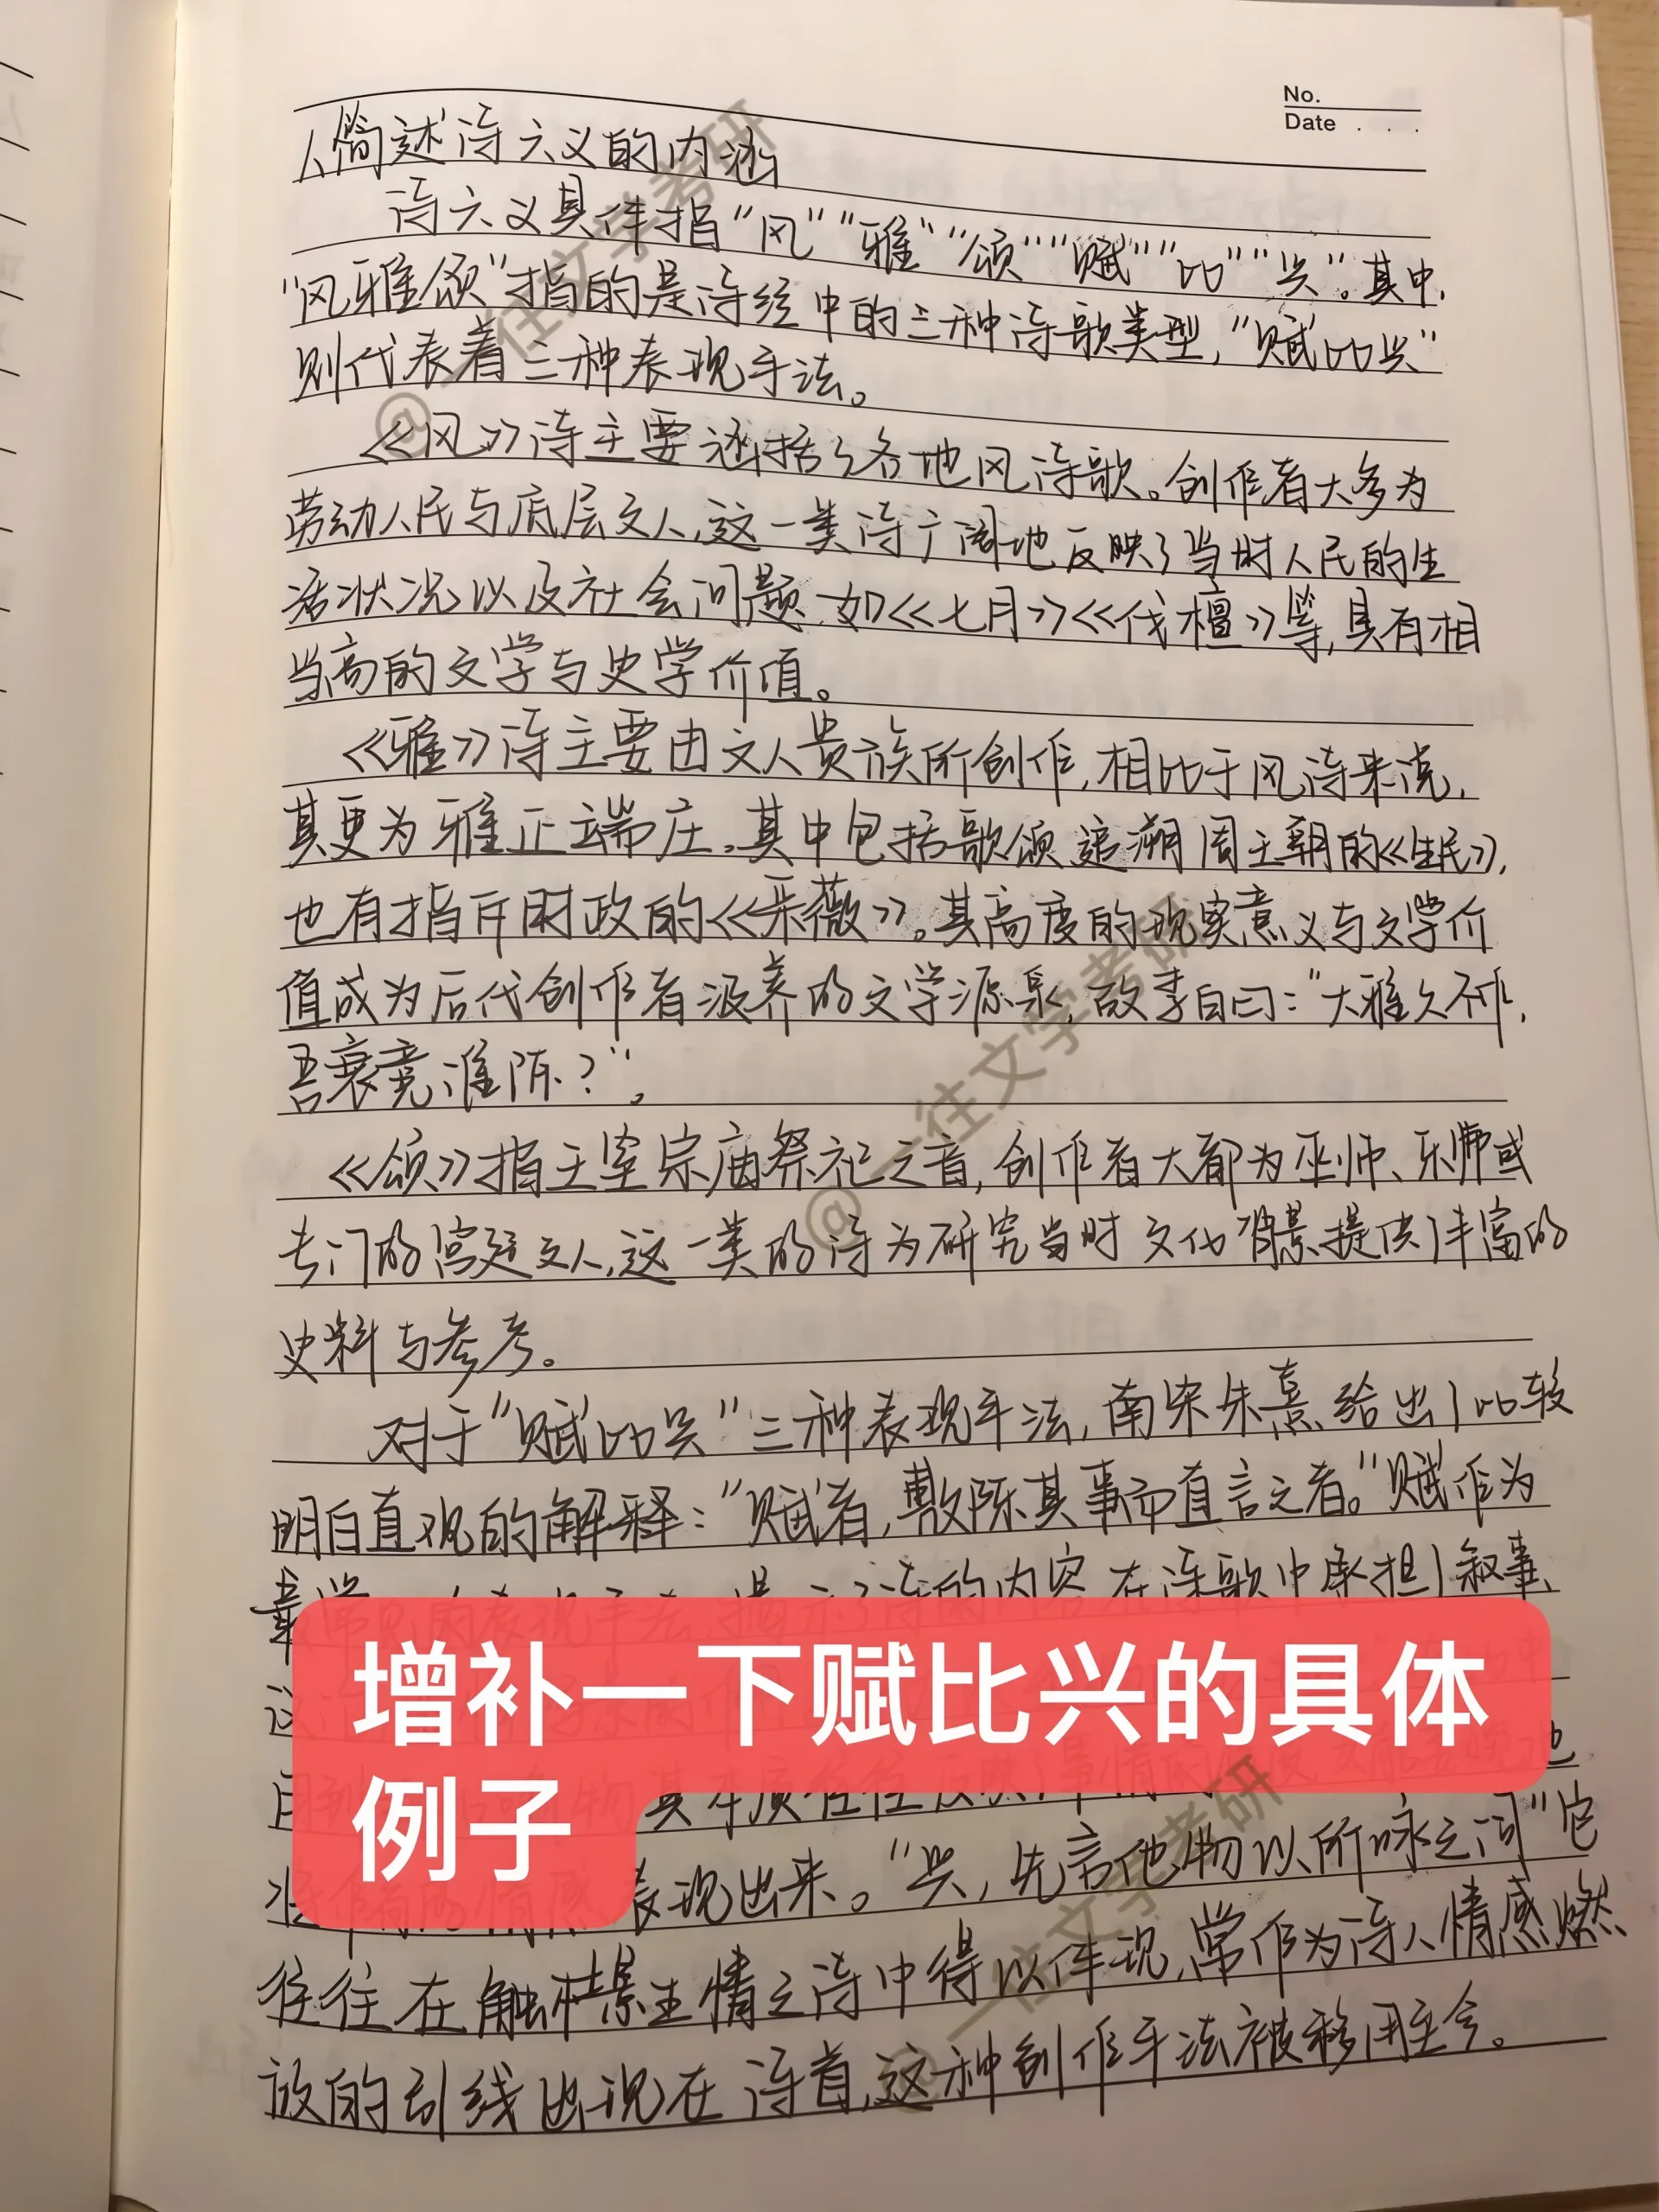 No.
Date
1、简述诗六义的内涵
诗六义具体指“风”“雅”“颂”“赋”“比”“兴”。其中,
“风雅颂”指的是诗经中的三种诗歌类型,“赋比兴”
则代表着三种表现手法。
《风》诗主要涵括了各地风诗歌。创作者大多为
劳动人民与底层文人,这一类诗广阔地反映了当时人民的生
活状况以及社会问题,如《七月》《伐檀》等,具有相
当高的文学与史学价值。
《雅》诗主要由文人贵族所创作,相比于风诗来说,
其更为雅正端庄。其中包括歌颂追溯周王朝的《生民》,
也有指斥时政的《采薇》。其高度的现实意义与文学价
值成为后代创作者汲养的文学源泉,故李白曰:“大雅久不作,
吾衰竟谁陈?”。
《颂》指王室宗庙祭祀之音,创作者大都为巫师、乐师或
专门的宫廷文人,这一类的诗为研究当时文化背景提供了丰富的
史料与参考。
对于“赋比兴”三种表现手法,南宋朱熹给出了比较
明白直观的解释:“赋者,敷陈其事而直言之者。”赋作为
诗的内容,在诗歌中承担了叙事、
增补一下赋比兴的具体
例子
物,其本质往往反映了事情
也
表现出来。“兴,先言他物以所咏之词”它
往往在触景生情之诗中得以体现,常作为诗人情感燃
放的引线出现在诗首,这种创作手法被移用至今。
@一往文学考研
@一往文学考研
@一往文学考研